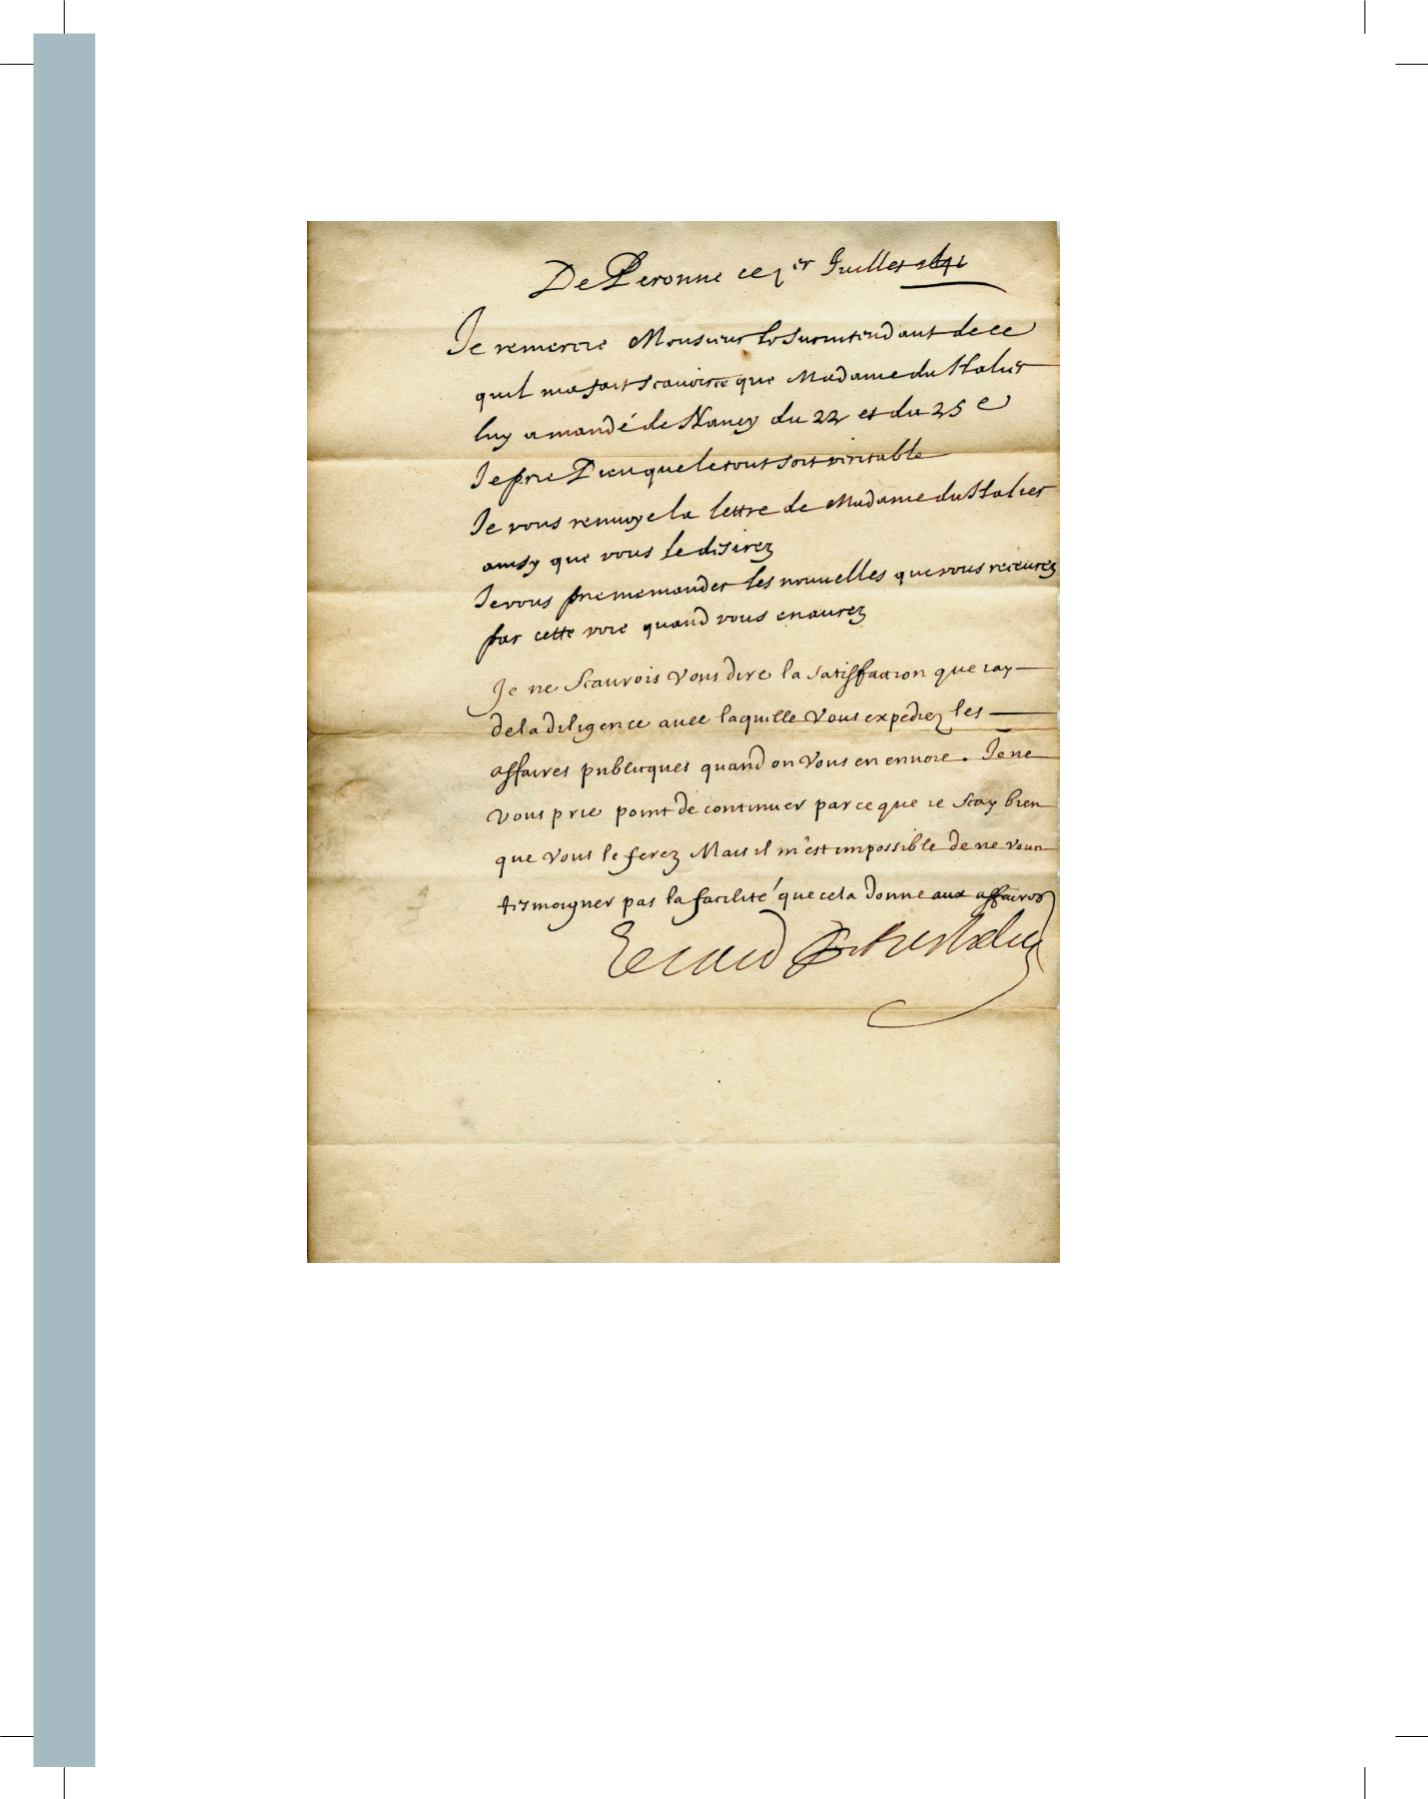 De Peronne ce 1er Juillet 1641
Je remercie Monsieur le Surintendant de ce
quil ma fait scavoir ce que Madame du Halier
luy a mandé de Nancy du 22 et du 25e
Je prie Dieu que le tout soit veritable
Je vous renvoye la lettre de Madame du Halier
ainsy que vous le desirez
Je vous prie me mander les nouvelles que vous receurez
par cette voie quand vous en aurez
Je ne scaurois vous dire la satisfaction que iay
de la diligence avec laquelle vous expediez les
affaires publicques quand on vous en envoie. Je ne
vous prie point de continuer parce que ie scay bien
que vous le ferez Mais il m'est impossible de ne vous
tesmoigner pas la facilité que cela donne aux affaires